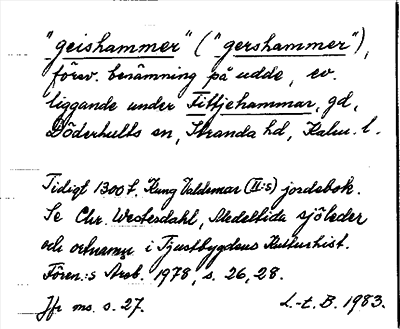 "geishammer" ("gershammer"),
försv. benämning på udde, ev.
liggande under Fittjehammar, gd,
Döderhults sn, Stranda hd, Kalm. l.
Tidigt 1300 t. Kung Valdemar (II:s) jordebok.
Se Chr. Westerdahl, Medeltida sjöleder
och ortnamn i Tjustbygdens Kulturhist.
Fören:s Årsb. 1978, s. 26, 28.
Jfr ms. s. 27.
L-t. B. 1983.